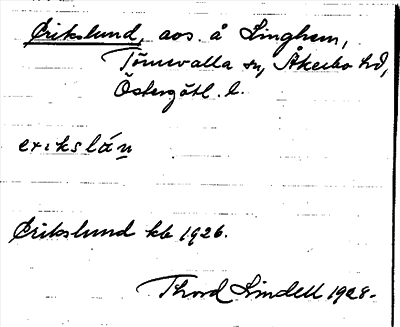 Erikslund, avs. å Linghem,
Törnevalla sn, Åkerbo hd,
Östergötl. l.
erikslán
Erikslund kb 1926.
Thord Lindell 1928.